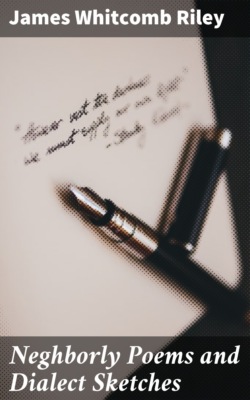 James Whitcomb Riley
"However vast the darkness
we must supply our own light"
- Stanley
Neghborly Poems and
Dialect Sketches